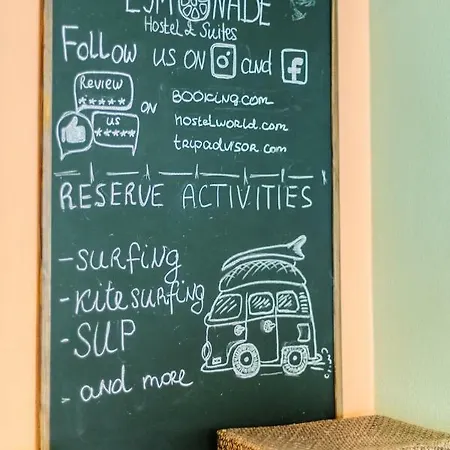 LEMONADE
Hostel & Suites
Follow us on and f
Review
*****
us
*****
ON
BOOKING.com
hostelworld.com
tripadvisor.com
RESERVE ACTIVITIES
- SURFING
- Kite surfing
- SUP
> and more